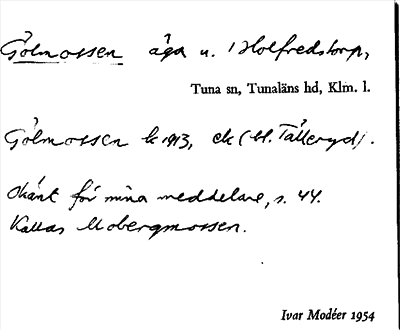 Gölmossen äga u. Holfredstorp,
Tuna sn, Tunaläns hd, Klm. l.
Gölmossen k 1913, ek (bl. Tålleryd).
Okänt för mina meddelare, s. 44.
Kallas Mobergmossen.
Ivar Modéer 1954